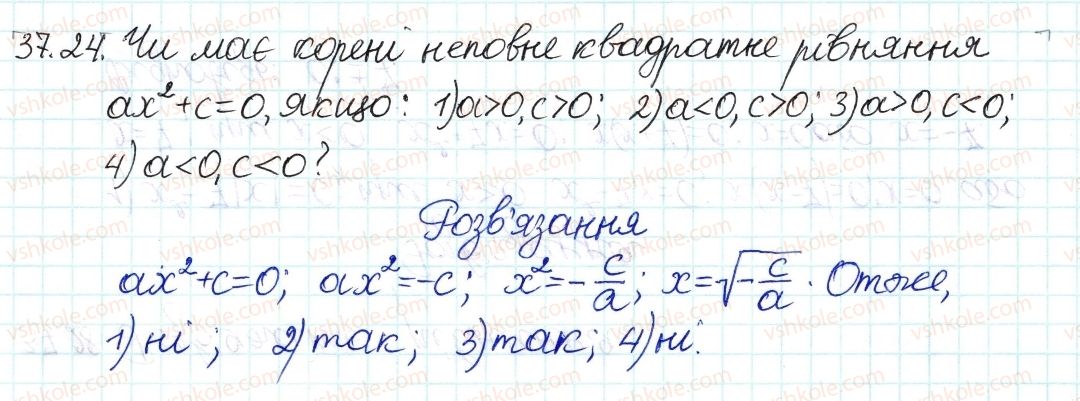 37.24. Чи має корені неповне квадратне рівняння
ax²+c=0, якщо: 1) a>0, c>0; 2) a<0, c>0; 3) a>0, c<0;
4) a<0, c<0?
Розв'язання
ax²+c=0; ax²=-c; x²=-c/a; x=√(-c/a). Отже,
1) ні; 2) так; 3) так; 4) ні.